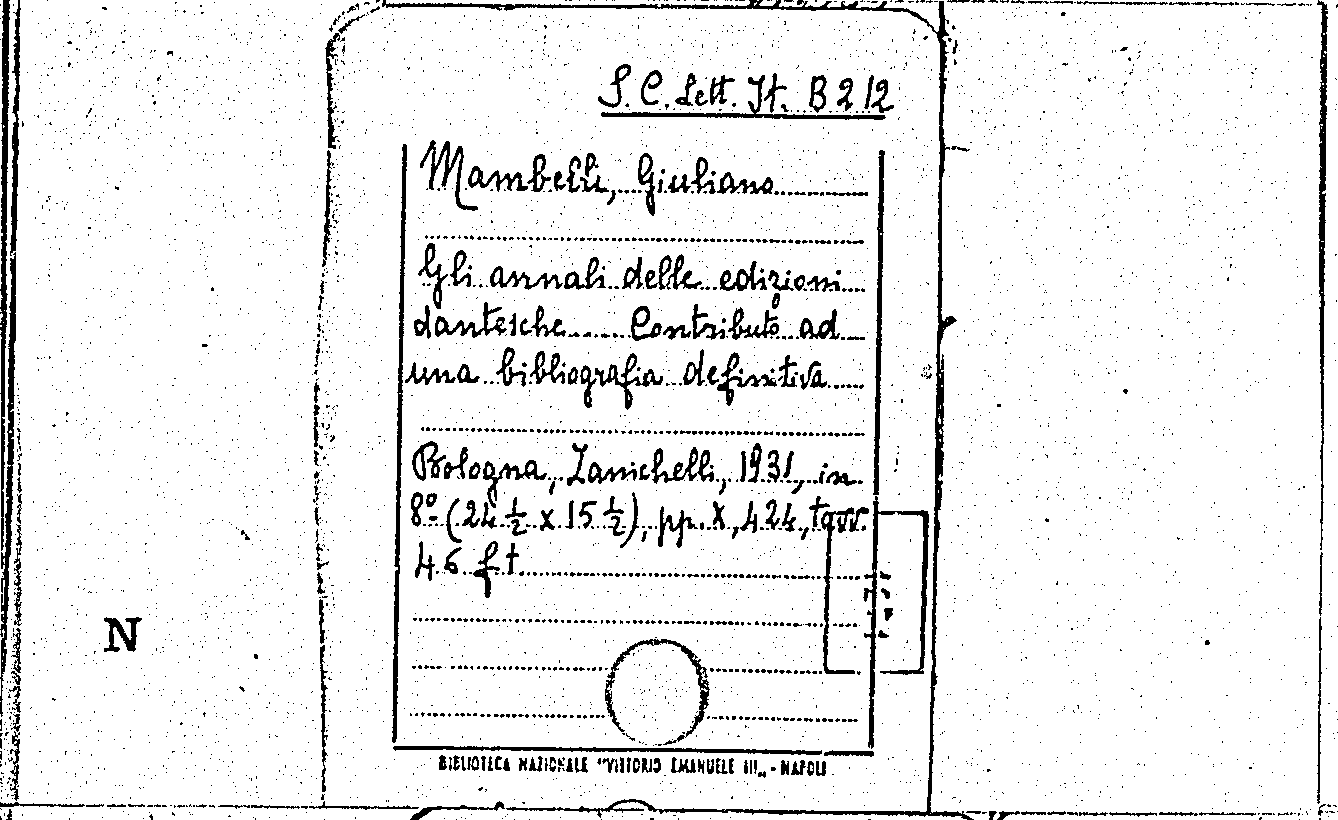 S. C. Lett. It. B 2 12
Mambelli, Giuliano
Gli annali delle edizioni
dantesche..... Contributo ad
una bibliografia definitiva
Bologna, Zanichelli, 1931, in
8º (24 ½ x 15 ½), pp. X, 424, tavv.
46 f t
N
BIBLIOTECA NAZIONALE "VITTORIO EMANUELE III„ - NAPOLI